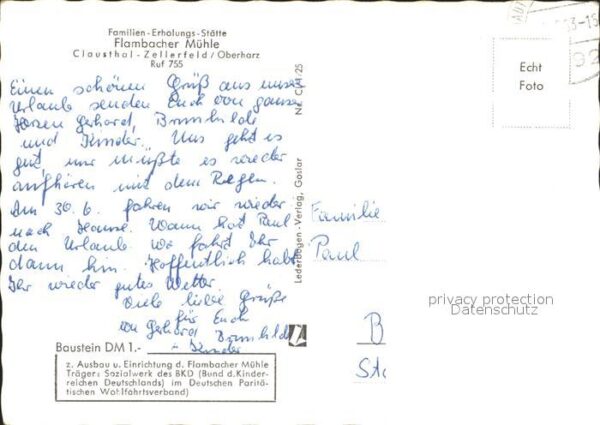 Familien-Erholungs-Stätte
Flambacher Mühle
Clausthal-Zellerfeld/Oberharz
Ruf 755
Einen schönen Gruß aus unser
Urlaub senden Euch von ganze
Herzen Gerhard, Brunhilde
und Kinder. Uns geht es
gut, nur müßte es wieder
aufhören mit dem Regen.
Am 30.6. fahren wir wieder
nach Hause. Wann hat Paul
den Urlaub. Wo fahrt Ihr
dann hin. Hoffentlich habt
Ihr wieder gutes Wetter.
Viele liebe Grüße
für Euch
von Gerhard Brunhilde
u Kinder
Baustein DM 1.-
z. Ausbau u. Einrichtung d. Flambacher Mühle
Träger: Sozialwerk des BKD (Bund d. Kinder-
reichen Deutschlands) im Deutschen Paritä-
tischen Wohlfahrtsverband)
Lederbogen-Verlag, Goslar
Echt
Foto
Familie
Paul
B
Sta
privacy protection
Datenschutz